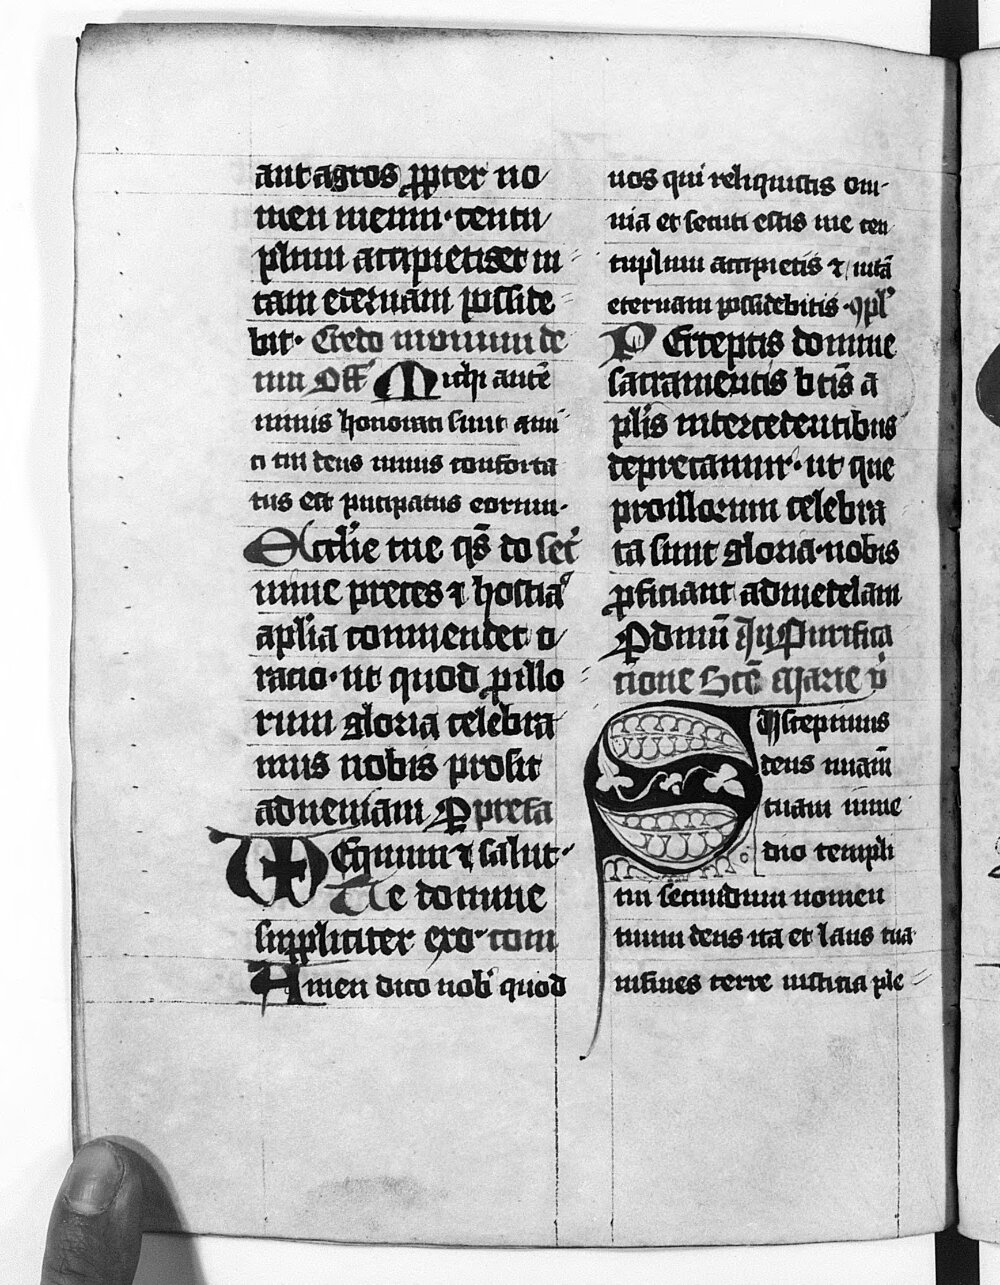 aut agros ꝓpter no
men meum · centu
plum accipietis et ui
tam eternam posside
bit · Credo in unum de
um Off̄ Michi autē
nimis honorati sunt ami
ci tui deus nimis conforta
tus est pncipatus eorum ·
Eccłie tue qs̄ do secͬ
mine preces ⁊ hostia
aplīa commendet o
racio · ut quod ꝓ illo
rum gloria celebra
mus nobis prosit
ad ueniam P prefa
Equum ⁊ salut ·
Te domine
suppliciter exo · com
Amen dico uob̾ quod
uos qui reliquistis om
nia et secuti estis me cen
tuplum accipietis ⁊ uitā
eternam possidebitis · ꝯpl̾
PErceptis domine
sacramentis btīs a
pl̄is intercedentibus
deprecamur · ut que
pro illorum celebra
ta sunt gloria · nobis
ꝓficiant ad medelam
P dn̄m In Purifica
cione Scē Marie ů
SUscepimus
deus miām
tuam in me
dio templi
tui secundum nomen
tuum deus ita et laus tua
in fines terre iusticia ple